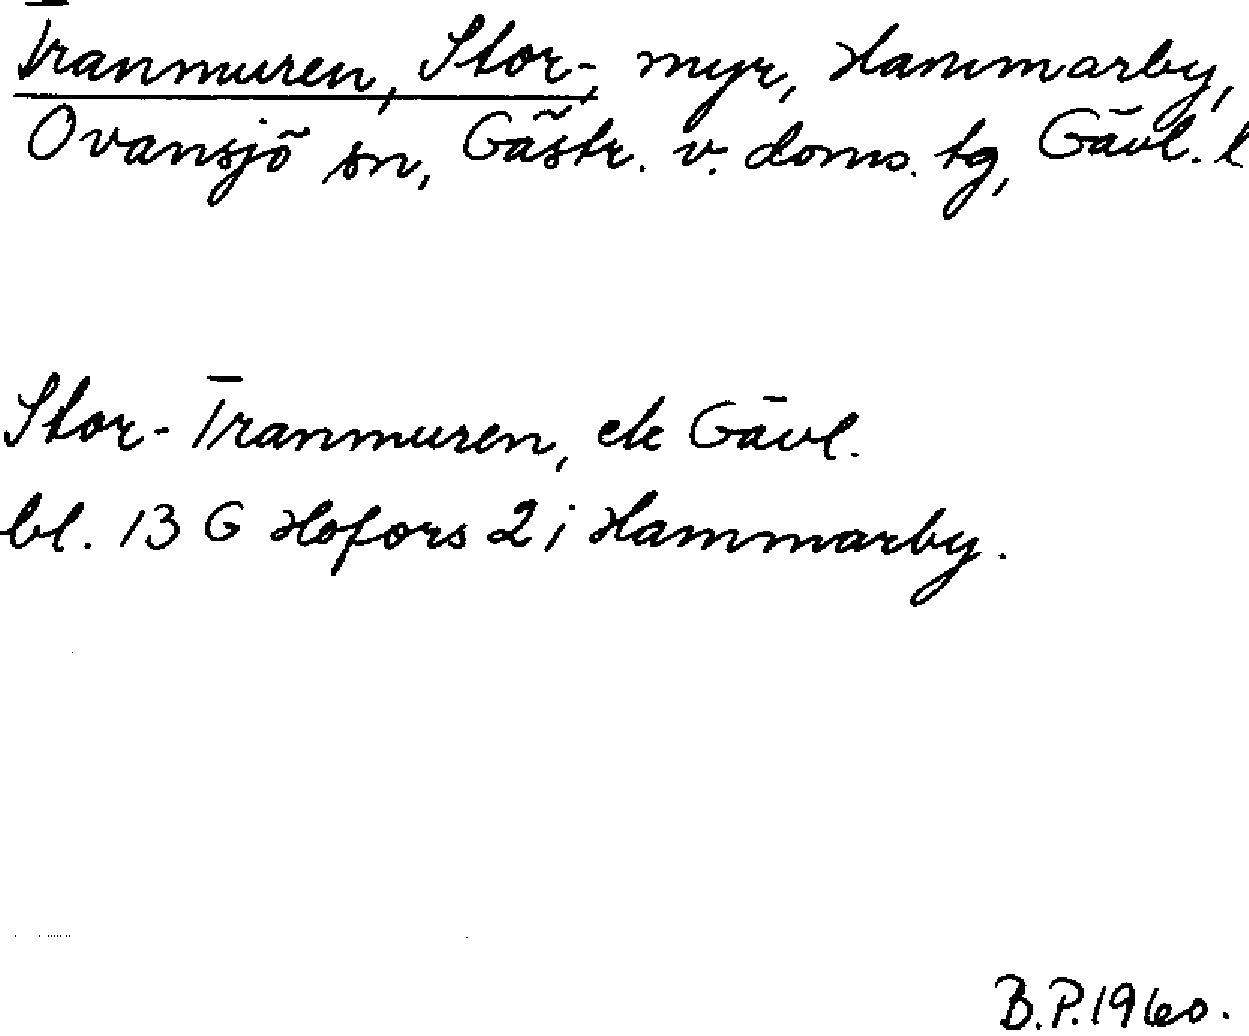 Tranmuren, Stor-, myr, Hammarby,
Ovansjö sn, Gästr. v. doms. tg, Gävl. l
Stor-Tranmuren, ek Gävl.
bl. 13 G Hofors 2 i Hammarby.
B.P. 1960.